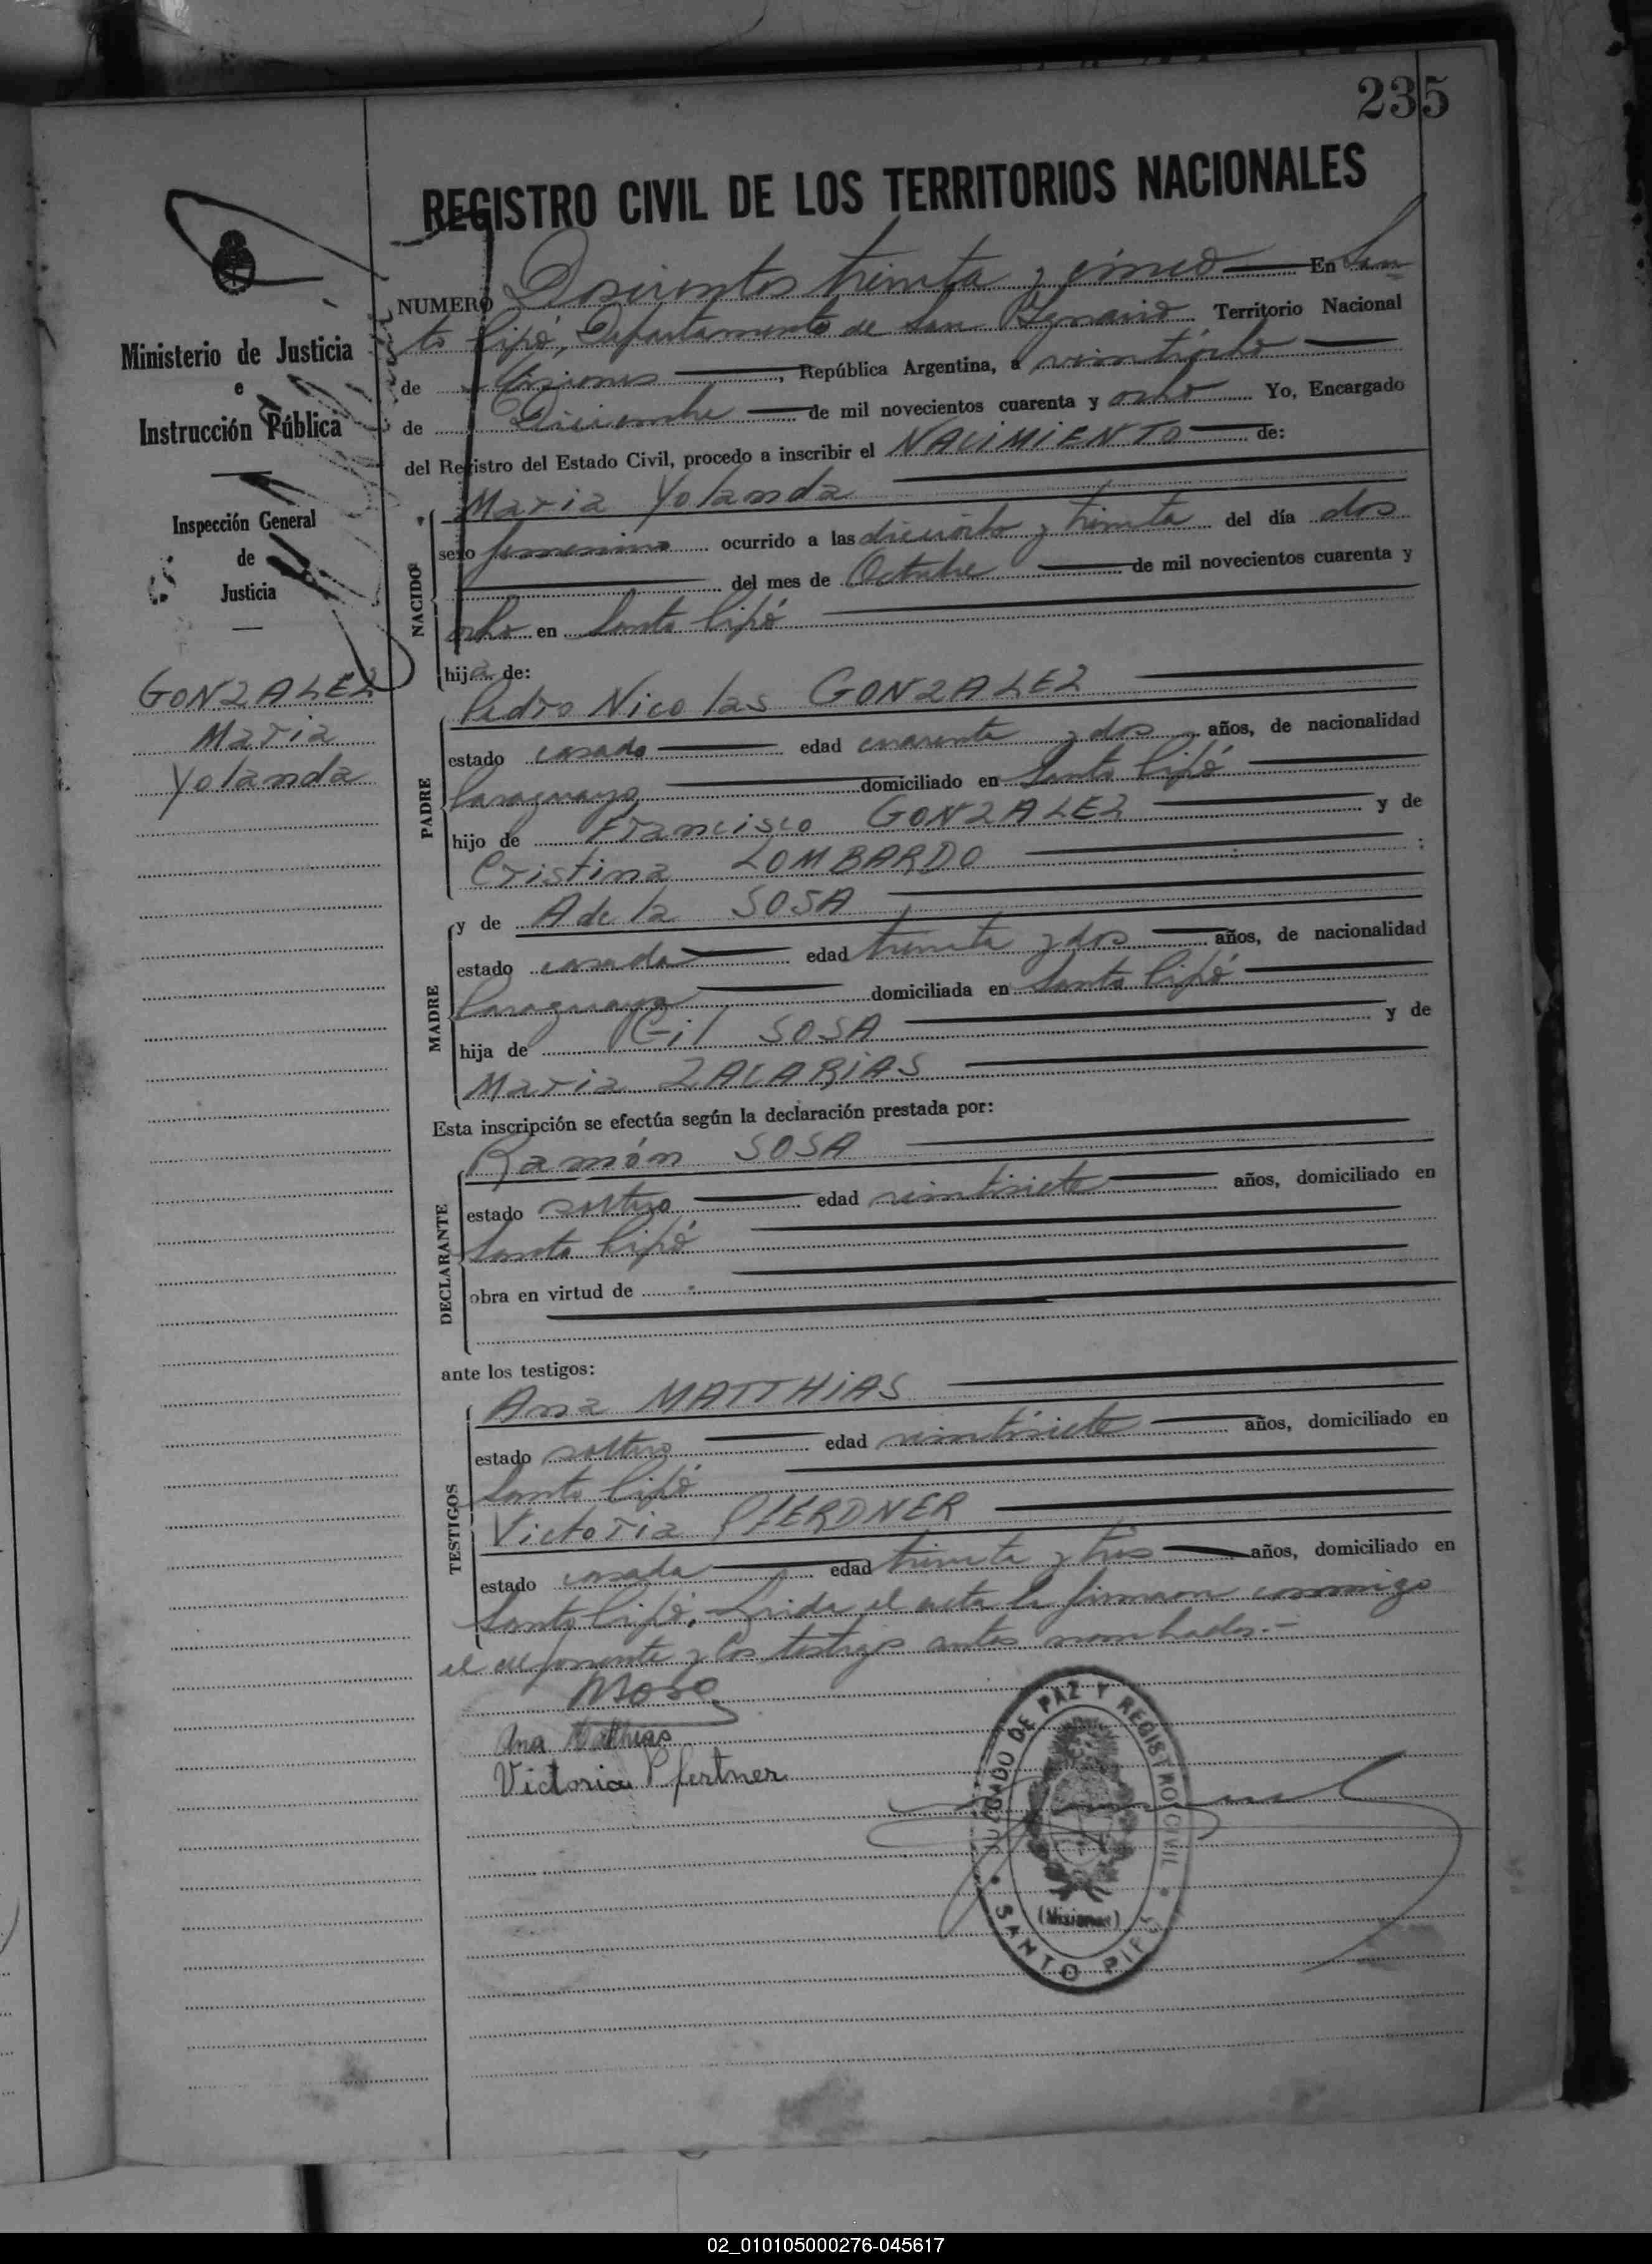 235
REGISTRO CIVIL DE LOS TERRITORIOS NACIONALES
Ministerio de Justicia
e
Instrucción Pública
Inspección General
de
Justicia
GONZALEZ
Maria
Yolanda
NUMERO Doscientos treinta y cinco En San
to Pipó, Departamento de San Ignacio Territorio Nacional
de Misiones, República Argentina, a veintiocho
de Diciembre de mil novecientos cuarenta y ocho Yo, Encargado
del Registro del Estado Civil, procedo a inscribir el NACIMIENTO de:
NACIDO
Maria Yolanda
sexo femenino ocurrido a las dieciocho y treinta del día dos
del mes de Octubre de mil novecientos cuarenta y
ocho en Santo Pipó
hija de:
PADRE
Pedro Nicolas GONZALEZ
estado casado edad cuarenta y dos años, de nacionalidad
Paraguaya domiciliado en Santo Pipó
hijo de Francisco GONZALEZ y de
Cristina LOMBARDO ;
MADRE
y de Adela SOSA
estado casada edad treinta y dos años, de nacionalidad
Paraguaya domiciliada en Santo Pipó
hija de Gil SOSA y de
Maria ZACARIAS
Esta inscripción se efectúa según la declaración prestada por:
DECLARANTE
Ramón SOSA
estado soltero edad veintisiete años, domiciliado en
Santo Pipó
obra en virtud de
ante los testigos:
TESTIGOS
Ana MATTHIAS
estado soltera edad veintisiete años, domiciliado en
Santo Pipó
Victoria PFERDNER
estado casada edad treinta y tres años, domiciliado en
Santo Pipó. Leida el acta la firmaron conmigo
el exponente y los testigos antes nombrados.-
Ana Matthias
Victoria Pfertner
JUZGADO DE PAZ Y REGISTRO CIVIL
(Misiones)
SANTO PIPÓ
02_010105000276-045617